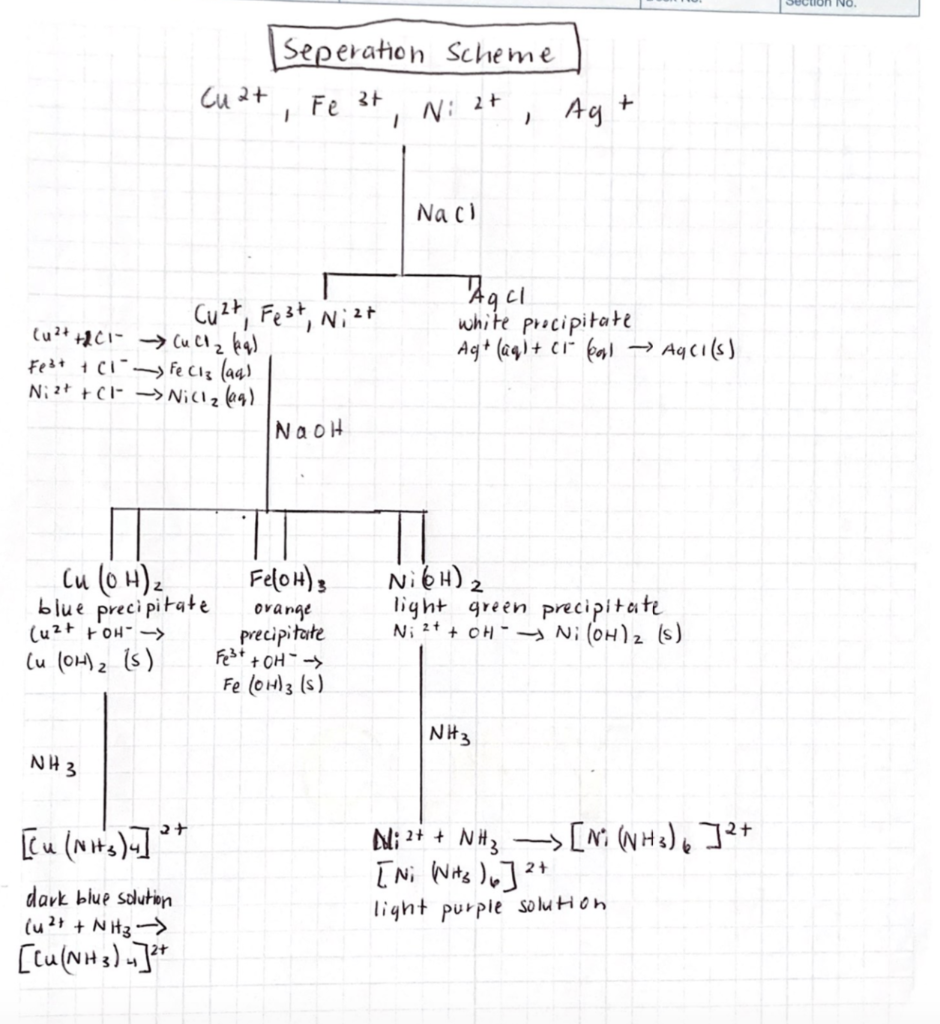 Section No.
Seperation Scheme
Cu 2+, Fe 3+, Ni 2+, Ag +
NaCl
Cu2+, Fe3+, Ni2+
AgCl
white precipitate
Ag+ (aq) + Cl- (aq) → AgCl(s)
Cu2+ +2Cl- → CuCl2 (aq)
Fe3+ + Cl- → FeCl3 (aq)
Ni2+ + Cl- → NiCl2 (aq)
NaOH
Cu(OH)2
blue precipitate
Cu2+ + OH- →
Cu(OH)2 (s)
Fe(OH)3
orange
precipitate
Fe3+ + OH- →
Fe(OH)3 (s)
Ni(OH)2
light green precipitate
Ni2+ + OH- → Ni(OH)2 (s)
NH3
NH3
[Cu(NH3)4] 2+
dark blue solution
Cu2+ + NH3 →
[Cu(NH3)4]2+
Ni2+ + NH3 → [Ni(NH3)6]2+
[Ni(NH3)6]2+
light purple solution